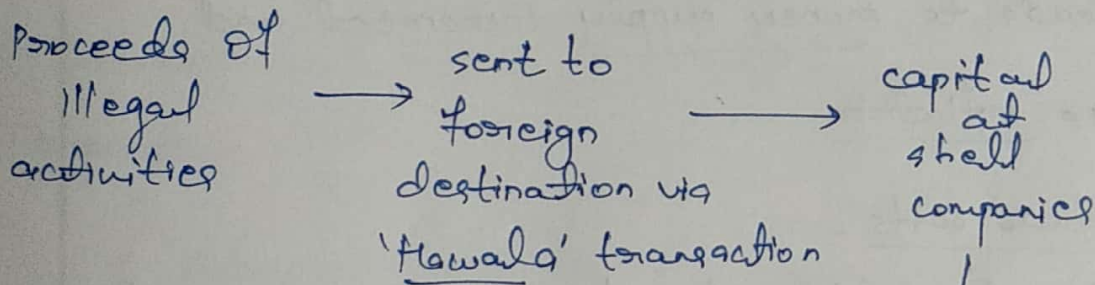 Proceeds of
illegal
activities
sent to
foreign
destination via
'Hawala' transaction
capital
at
shell
companies